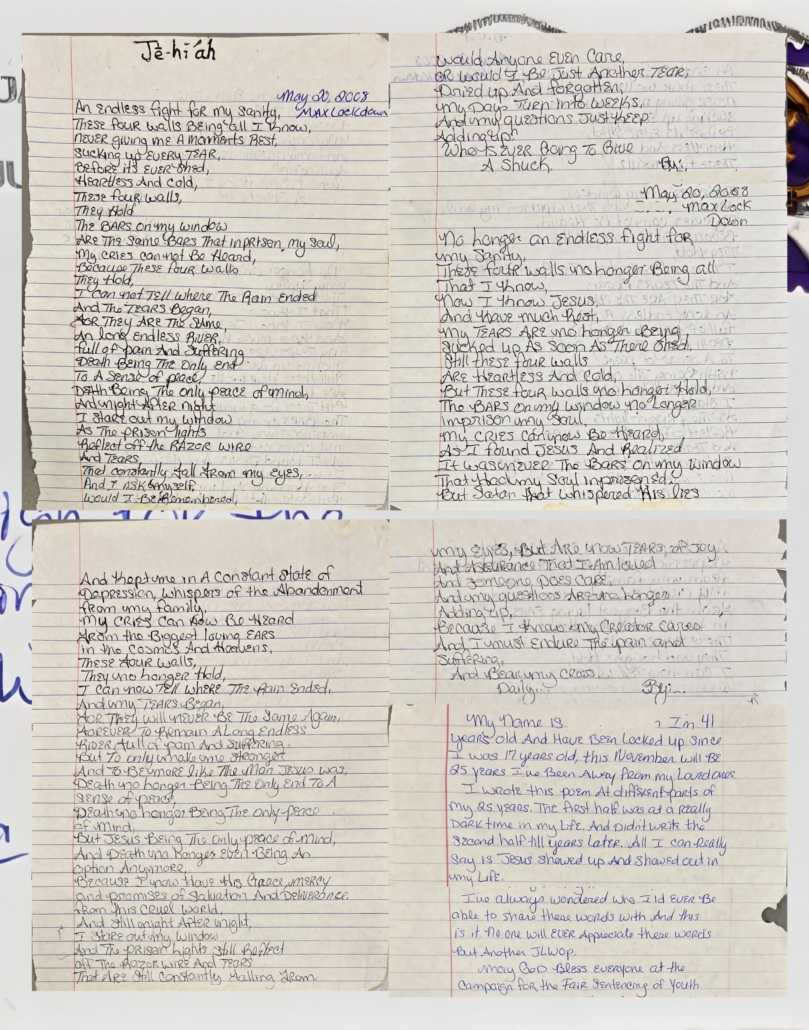 Jē-hī-áh
May 20, 2008
An Endless fight for my sanity, MAX Lockdown
These four walls Being all I know,
never giving me A moments Rest,
sucking up every TEAR,
Before its ever shed,
Heartless And Cold,
These four walls,
They Hold
The BARS on my window
ARE The same BARS That inprison my soul,
My cries can not Be Heard,
Because These four walls
They Hold,
I can not Tell where The Rain Ended
And The TEARS Began,
For They ARE The Same,
An long endless River,
full of pain And suffering
Death Being The Only end
To A sense of peace,
Death Being The only peace of mind,
And night After night
I stare out my window
As The prison lights
Reflect off the RAZOR WIRE
And Tears,
That constantly fall from my eyes,
And I ask myself,
Would I Be Remembered,
Would Anyone Even Care,
or would I Be Just Another TEAR,
Dried up And forgotten,
my Days Turn into Weeks,
And my questions Just Keep
Adding up!
Who's Ever Going To Give
A Shuck. By:,
May 20, 2008
Max Lock
Down
No longer an Endless fight for
my Sanity,
These four walls no longer Being all
That I Know,
Now I Know Jesus,
And Have much Rest,
My TEARS ARE no longer Being
sucked up As Soon As There Shed,
Still these four walls
ARE Heartless And Cold,
But These four walls no longer Hold,
The BARS on my window no Longer
Imprison my Soul,
my Cries can now Be Heard,
As I found Jesus And Realized
It was never The Bars on my Window
That Had my Soul inprisoned,
But Satan that whispered His lies
And Kept me in A Constant state of
Depression, whispers of the Abandonment
from my family,
My CRIES Can Now Be Heard
from the Biggest loving EARS
in the Cosmos And Heavens,
These four Walls,
They no longer Hold,
I can now Tell where The Rain Ended,
And my TEARS Began,
For They will never Be The Same Again,
forever To Remain A Long Endless
River full of pain And Suffering
But To only make me stronger
And To Be more like The Man Jesus was,
Death no longer Being The Only End To A
sense of peace,
Death no longer Being The Only peace
of mind,
But Jesus Being The Only peace of Mind,
And Death no longer Even Being An
option Anymore,
Because I now Have His Grace, mercy
and promises of Salvation And Deliverance
from this Cruel World,
And still night After night,
I stare out my Window
And The prison Lights Still Reflect
off The Razor Wire And TEARS
That ARE Still Constantly falling from
my eyes, But Are now TEARS, of Joy
And Assurance That I Am loved
And Someone Does Care,
And my questions Are no longer
Adding up,
Because I Know my Creator Cares
And I must Endure The pain and
Suffering,
And Bear my Cross
Daily.. By:..
My Name is , I'm 41
years old And Have Been Locked up since
I was 17 years old, this November will Be
25 years I've Been Away from my Loved ones.
I wrote this poem At different parts of
my 25 years. The first half was at a really
Dark time in my Life. And didn't write the
second half till years later. All I can really
Say is Jesus showed up And showed out in
my Life.
I've always wondered who I'ld Ever Be
able to share these words with And this
is it. No one will Ever Appreciate these words
But Another JLWOP.
May God Bless Everyone at the
Campaign for the Fair Sentencing of Youth